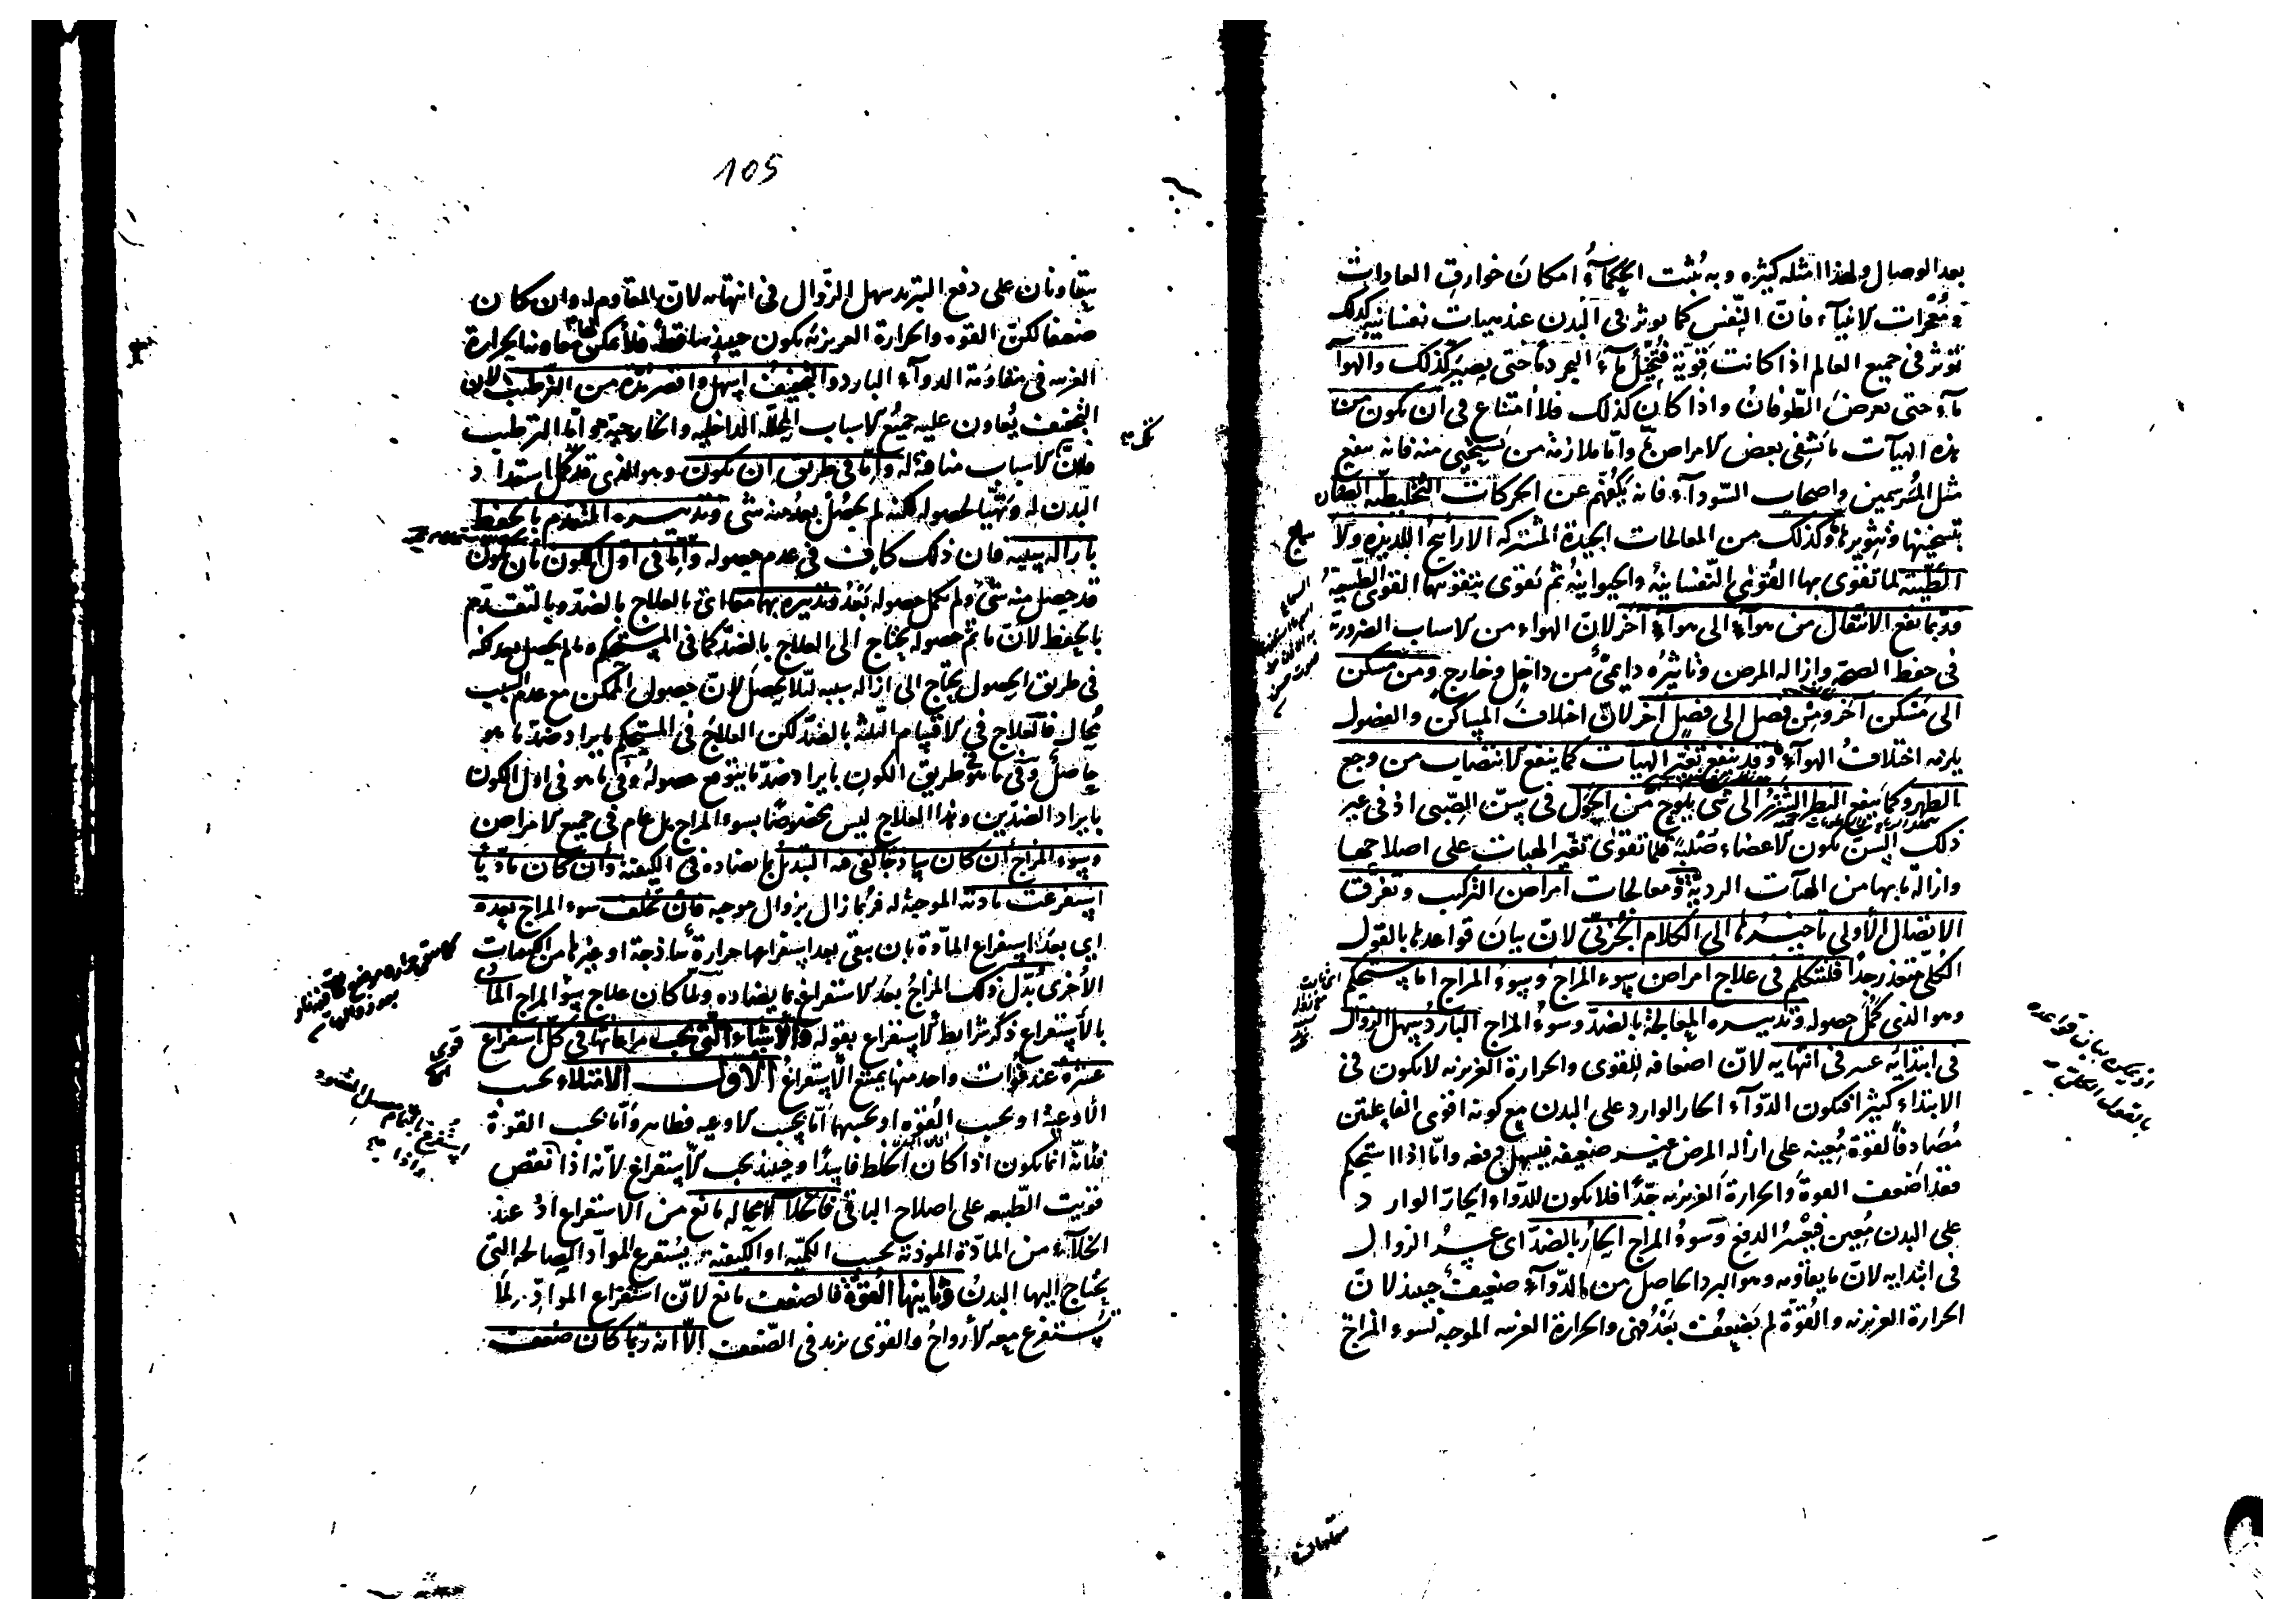 بعد الوصال ولهذا امثلة كثيرة وبه يُثبت الحكماءُ امكانَ خوارقِ العادات
ومُعجزات الانبياء فانّ النّفس كما يوثر فى البدن عند هيات نفسانيه كذلك
تؤثر فى جميع العالم اذا كانت قويّة فتُحيّلُ ماءَ البحر دمًا حتى يصير كذلك والهواء
ماء حتى يعرض الطّوفانُ واذا كان كذلك فلا امتناع فى ان يكون من
هذه الهيآت ما تشفى بعض الامراض وامّا ملازمة من يَستحيى منه فانه ينفع
مثل المُبرسمين واصحاب السّودآء فانه يكفّهم عن الحركات التخليطيّه
بتسخينها وتثويرها وكذلك من المعالجات الجيدة المشتركه الارائحُ اللذيذه ولا
الطّيبة لما تقوى بها القُوى النّفسانيهُ والحيوانيهُ ثم تقوى بتقويتها القوى الطّبيعيةُ
وربما نفع الانتقال من هوآءٍ الى هوآءٍ آخَر لانّ الهواء من الاسباب الضرورية
فى حفظ الصحّة وازالة المرض وتاثيرُه دايمىٌّ من داخلٍ وخارجٍ ومن مسكن
الى مَسكن آخَر ومن فصل الى فصلٍ آخَر لانّ اختلافَ المساكن والفصول
يلزمه اختلافُ الهوآءِ وقد ينفع تغيّر الهيات كما ينفع الانتصاب من وجع
الظهر وكما ينفع النظر الشَّزرُ الى شى يلوح من الحَوَل فى سِنّ الصّبى اذ فى غير
ذلك السنّ تكون الاعضاء صُلبةً فلما تقوى تغيّر الهيات على اصلاحها
وازالة ما بها من الهيآت الرديّة ومعالجات امراض التركيب وتفرق
الاتصال الاولى تاخيرُها الى الكلام الجُزئىّ لانّ بيانَ قواعدها بالقول
الكُلّى متعذر جدًا فلنتكلم فى علاج امراض سوء المزاج وسوء المزاج اما مستحكم
وهو الذى كَمُلَ حصوله وتدبيره المعالجة بالضدّ وسوءُ المزاج البارد يسهل الزوال
فى ابتدائه عسر فى انتهايه لانّ اضعافه للقوى والحرارة الغريزيه لا يكون فى
الابتداء كثيرًا فتكون الدّوآء الحار الوارد على البدن مع كونه اقوى الفاعلتين
مُصَادفًا لقوّة مُعينه على ازالة المرض غير ضعيفه فيسهل دفعه وامّا اذا استحكم
فقد اَضعفت القوةَ والحرارةَ الغريزيه جدًّا فلا يكون للدّواء الحارّ الوارد
على البدن مُعين فيَعْسُرُ الدفع وسوءُ المزاج الحارّ بالضدّ اى عسِرُ الزوال
فى ابتدايه لانّ ما يقاومه وهو البرد الحاصل من الدّوآء ضعيفٌ حينئذ لانّ
الحرارة الغريزيه والقُوّة لم يَضعُفا بَعدُ فهى والحرارة الغريبه الموجبه لسوء المزاج
105
يتعاونان على دفع التبريد سهل الزّوال فى انتهائه لانّ المقاوم له وان كان
ضعيفا لكن القوه والحرارة الغريزيه يكون حينئذ ساقطة فلا يُمكن معاونة الحرارة
الغريبه فى مقاومة الدوآء البارد والتجفيفُ اسهل واقصر مُدّة من الترطيب لان
التجفيف يُعاون عليه جميعُ الاسباب المُحلّله الداخليه والخارجيّة وامّا الترطيب
فانّ الاسباب منافية له وامّا فى طريق ان يكون وهو الذى قد كمل استعداد
البدن له وتهيّا لحصوله لكنه لم يحصُل بعدُ منه شى وتدبيره المتقدّم بالحفظ
بازالة سببه فان ذلك كافٍ فى عدم حصوله وامّا فى اول الكون بان يكون
قد حصل منه شىٌ ولم يكمل حصوله بَعْدُ وتدبيره بهما معًا اى بالعلاج بالضدّ وبالتقدّم
بالحفظ لانّ ما تمّ حصوله يحتاج الى العلاج بالضدّ كما فى المستحكم وما لم يحصل بعد لكنه
فى طريق الحصول يحتاج الى ازالة سببه لئلا يحصل لانّ حصول الممكن مع عدم السبب
مُحال فالعلاج فى الاقسام الثلثه بالضدّ لكن العلاجَ فى المستحكم بايراد ضدّ ما هو
حاصلٌ وفى ما هو طريق الكون بايراد ضدّ ما يتوقع حصولُه وفى ما هو فى اول الكون
بايراد الضدّين وهذا العلاج ليس مخصوصًا بسوء المزاج بل عام فى جميع الامراض
وسوء المزاج ان كان ساذجًا كفى فيه التبديل بما يضاده فى الكيفيه وان كان مادّيًا
استفرغت مادته الموجبة له فربما زال بزوال موجبه فان تخلّف سوء المزاج بعده
اى بعد استفراغ المادّة بان يبقى بعد استفراغها حرارةٌ ساذجة او غيرها من الكيفيات
الاُخرى بُدّل ذلك المزاجُ بعد الاستفراغ بما يضاده ولمّا كان علاج سوء المزاج المادّى
بالاستفراغ ذكر شرايط الاستفراغ بقوله والاشياء التى يجب مراعاتها فى كلّ استفراغ
عشرةٌ عند فوات واحد منها يمتنع الاستفراغُ الاول الامتلاء بحسب
الاوعية او بحسب القوّه او بحسبهما امّا بحسب الاوعيه فظاهر وامّا بحسب القوّة
فلانّه انما يكون اذا كان الخلط فاسدًا وحينئذ يجب الاستفراغ لانّه اذا نقص
قويت الطّبيعه على اصلاح الباقى فالخلاء لا محاله مانع من الاستفراغ اذ عند
الخلاء من المادّة الموذية بحسب الكمّيه او الكيفيه يُستفرغ الموادّ الصالحه التى
يحتاج اليها البدنُ وثانيها القوّة فالضعف مانع لانّ استفراغ الموادّ ربما
يُستفرغ معه الارواحُ والقوى يزيد فى الضّعف الّا انه ربّما كان ضعف